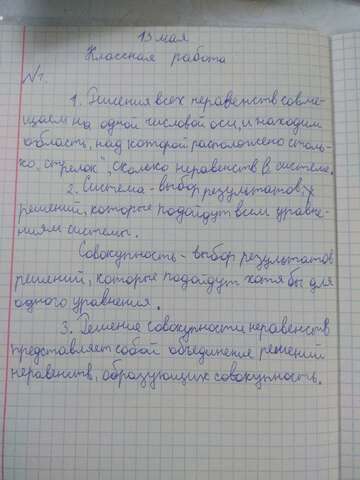 13 мая
Классная работа
№1.
1. Решения всех неравенств совме-
щаем на одной числовой оси, и находим
область, над которой расположено столь-
ко "стрелок", сколько неравенств в системе.
2. Система - выбор результатов
решений, которые подойдут всем уравне-
ниям системы.
Совокупность - выбор результатов
решений, которые подойдут хотя бы для
одного уравнения.
3. Решение совокупности неравенств
представляет собой объединение решений
неравенств, образующих совокупность.